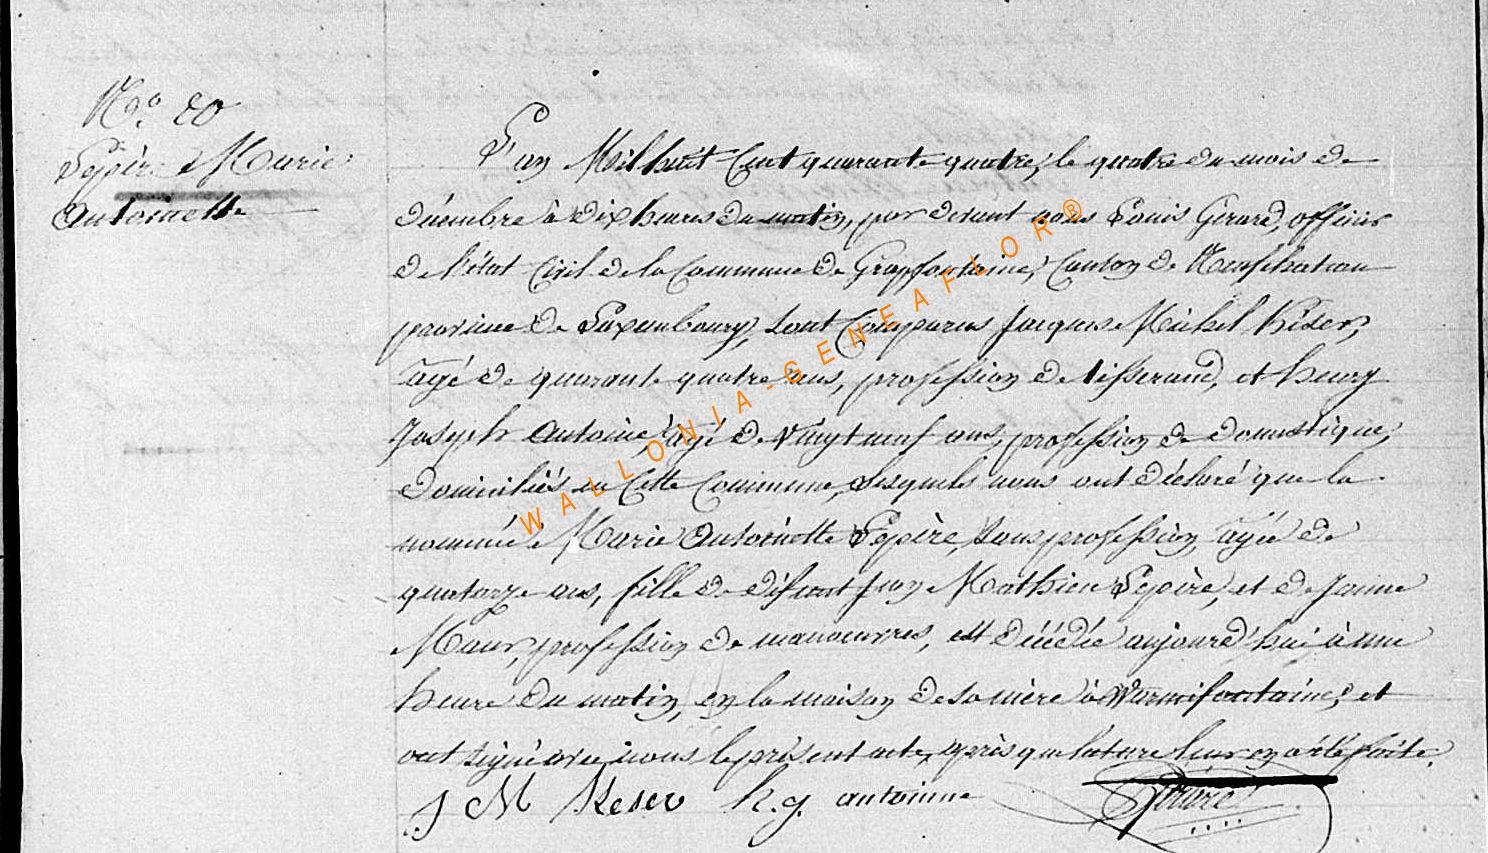 N.o 20
Lepère Marie
Antoinette
L'an Mil huit Cent quarante quatre, le quatre du mois de
décembre à dix heures du matin, par devant nous Louis Gérard, officier
de l'état Civil de la Commune de Grapfontaine, Canton de Neufchateau
province de Luxembourg, sont Comparus Jacques Michel Késer,
âgé de quarante quatre ans, profession de tisserand, et henry
Joseph Antoine, âgé de vingt neuf ans, profession de domestique,
domiciliés en Cette Commune, lesquels nous ont déclaré que la
nommée Marie Antoinette Lepère, sans profession, âgée de
quatorze ans, fille de défunt Jean Mathieu Lepère, et de Jeanne
profession de manoeuvres, est décédée aujourd'hui à une
heure du matin, en la maison de sa mère à Warmifontaine, et
ont signé avec nous le présent acte, après que lecture leur en a été faite.
J M Keser h. j. antoinne Gérard
WALLONIA-GENEAFLOR®